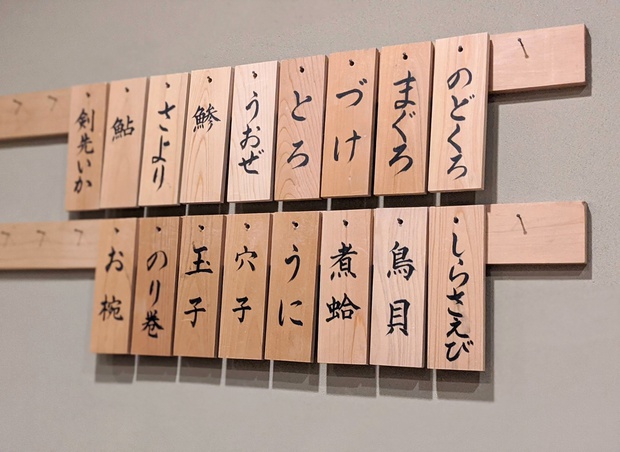 のどくろ
まぐろ
づけ
とろ
うおぜ
鯵
さより
鮎
剣先いか
しらさえび
鳥貝
煮蛤
うに
穴子
玉子
のり巻
お椀